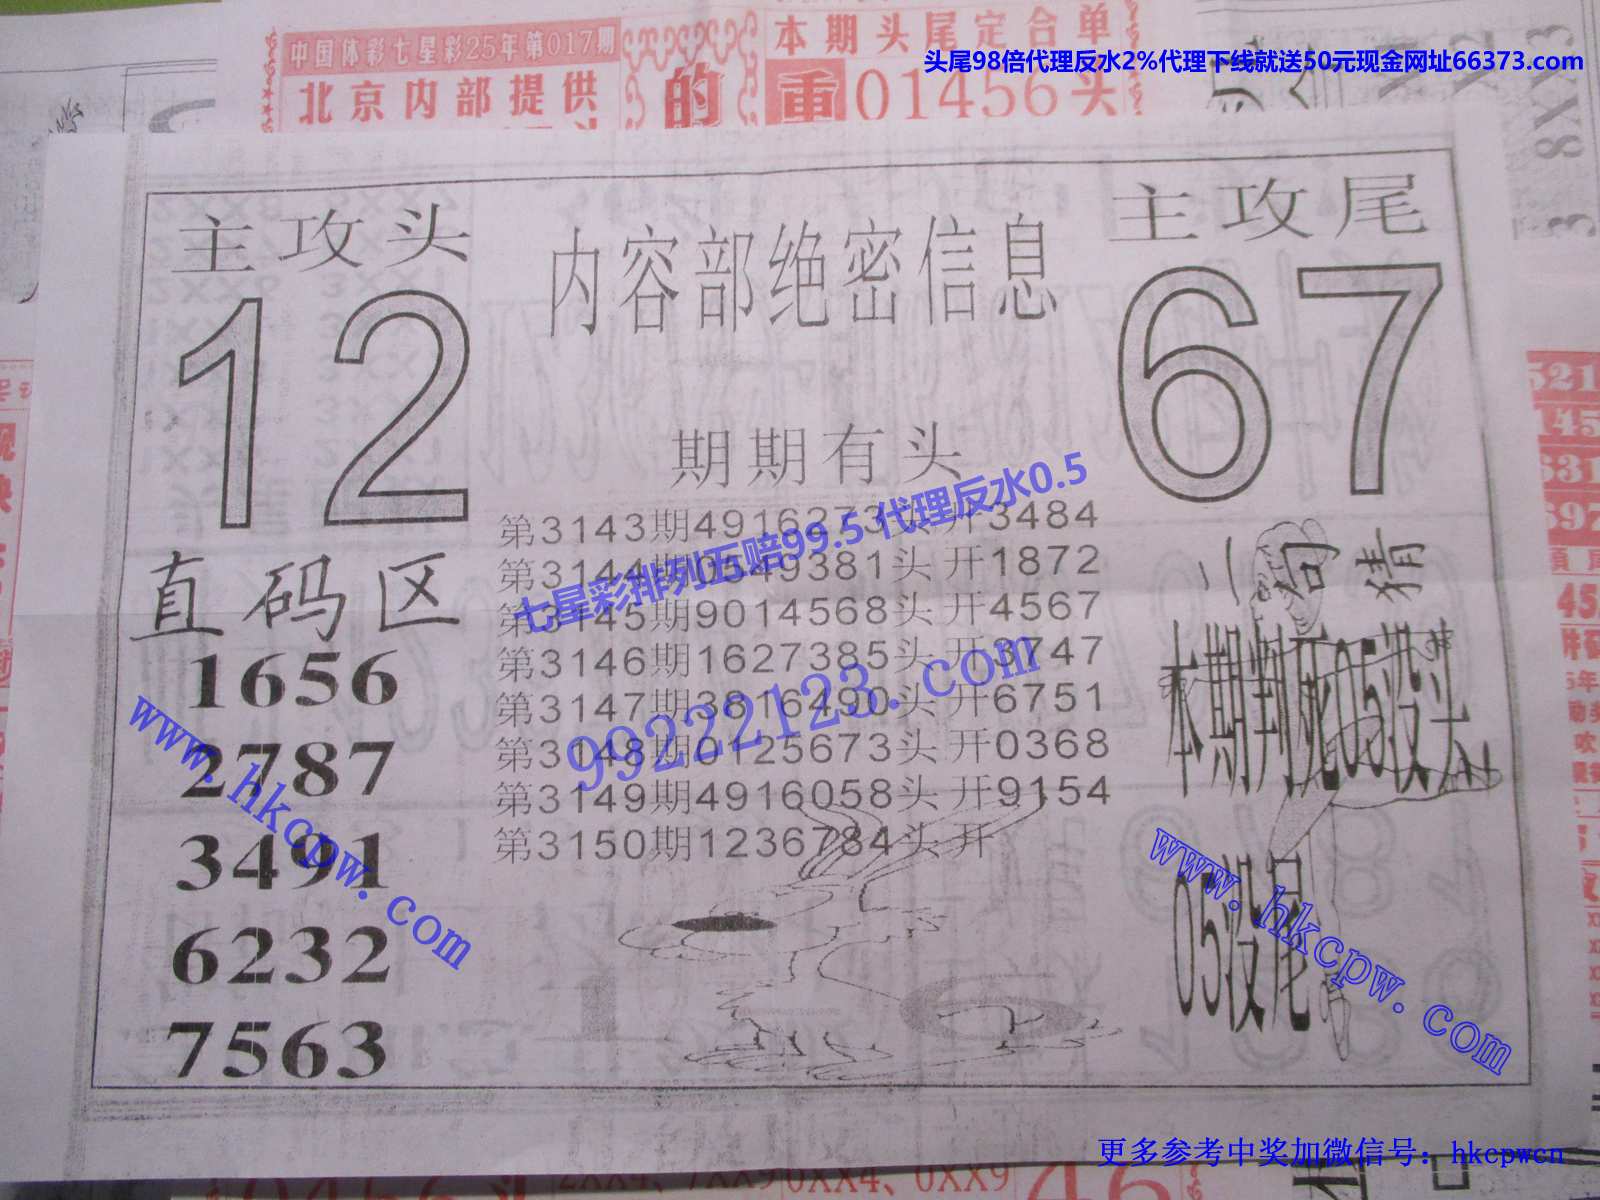 中国体彩七星彩25年第017期
北京内部提供
的
本期头尾定合单
重01456头
头尾98倍代理反水2%代理下线就送50元现金网址66373.com
8XX3
主攻头
12
内容部绝密信息
主攻尾
67
期期有头
第3143期4916273头 开3484
第3144期0549381头 开1872
第3145期9014568头 开4567
第3146期1627385头 开3747
第3147期3816490头 开6751
第3148期0125673头 开0368
第3149期4916058头 开9154
第3150期1236784头 开
七星彩排列五赔99.5 代理反水0.5
99222123.com
直码区
1656
2787
3491
6232
7563
www.hkcpw.com
二句猜
本期判死05没头
05没尾
www.hkcpw.com
更多参考中奖加微信号：hkcpwcn